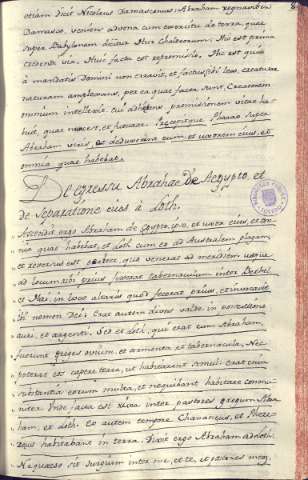 etiam dicit Nicolaus Damascenus: Abraham regnavit in
Damasco, veniens advena cum exercitu de terra, quae
super Babylonem dicitur Huic Chaldeorum. Hic est prima
credendi via. Huic facta est repromissio. Hic est quia
à mandatis Domini non creavit, et
naturam per ea quae facta sunt, Creatorem
omnium intellexit. cui
buit, quae noceret, et juvaret. Praecepitque Pharao super
Abraham viris, et deduxerunt eum, et uxorem eius, et
omnia quae habebat.
De egressu Abrahae de Aegypto, et
de separatione eius à Loth.
Ascendit ergo Abraham de Aegypto, ipse, et uxor eius, et om-
nia quae habebat, et Loth cum eo ad Australem plagam,
et reversus est per iter, quo venerat à meridiem usque
ad locum ubi prius fixerat tabernaculum inter Bethel
et Hai, in loco altaris quod fecerat prius, et invocavit
ibi nomen Dñi. Erat autem dives valde in possessione
auri, et argenti. Sed et Loth, qui erat cum Abraham,
fuerunt greges ovium, et armenta, et tabernacula. Nec
poterat eos capere terra, ut habitarent simul: erat enim
substantia eorum multa, et nequibant habitare commu-
niter. Unde facta est rixa inter pastores gregum Abra-
ham, et Loth. Eo autem tempore Chananeus, et Phere-
zeus habitabant in terra. Dixit ergo Abraham ad Loth:
Ne quaeso sit iurgium inter me, et te, et pastores meos,